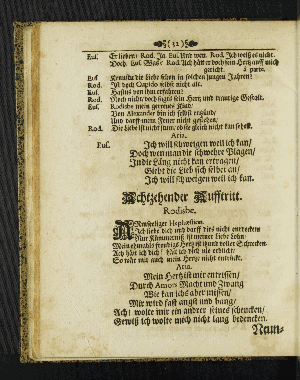 (32)
Euf. Er lieben. Rod. Ja. Euf. Und wen. Rod. Ich weiß es nicht.
Doch Euf. Was? Rod. Ach hätt er doch sein Hertz auff mich
gericht. à parte.
Euf. Kennstu die Liebe schon in solchen jungen Jahren?
Rod. Ist doch Cupido selbst nicht alt.
Euf. Hastus von ihm erfahren?
Rod. Noch nicht/ doch sein Hertz und muntige Gestalt.
Euf. Rodisbe mein getreues Kind/
Von Alexander bin ich selbst
Und darff mein Feuer nicht gestehen.
Rod. Die Liebe ist nicht stum, ob sie gleich nicht kan
Aria.
Euf. Ich will schweigen weil ich kan/
Doch wen man die schwehre Plagen/
In die Läng nicht kan ertragen/
Giebt die Lieb sich selber an/
Ich will schweigen weil ich kan.
Achtzehender Aufftritt.
Rodisbe.
Armseeliger Hephæstion.
Ich liebe dich und darff dies nicht entdecken
Nur Kümmernis ist meiner Liebe Lohn/
Mein ehmahls freudigs Hertz ist itzund voller Schrecken.
Ach hätt ich dich! hätt ich dich nie erblickt/
So wär mir auch mein Hertz nicht entrückt.
Aria.
Mein Hertz ist mir entrissen/
Durch Amors Macht und Zwang
Wie kan ichs aber missen/
Mir wird fast angst und bang/
Ach! wolte mir ein andrer seines schencken/
Gewiß ich wolte mich nicht lang bedencken.
Neun-